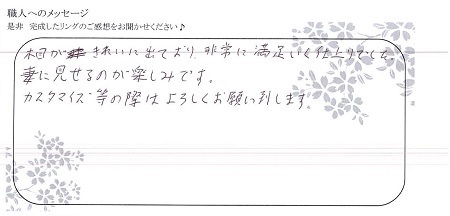 職人へのメッセージ
是非　完成したリングのご感想をお聞かせください♪
木目がきれいに出ており、非常に満足いく仕上りでした。
妻に見せるのが楽しみです。
カスタマイズ等の際はよろしくお願い致します。